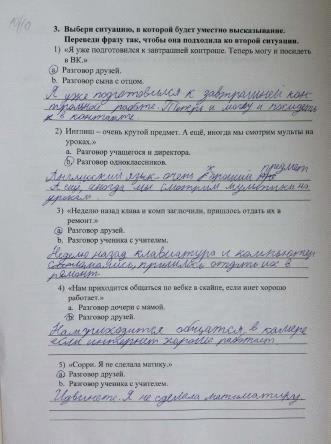 10/10
3. Выбери ситуацию, в которой будет уместно высказывание.
Переведи фразу так, чтобы она подходила ко второй ситуации.
1) «Я уже подготовился к завтрашней контроше. Теперь могу и посидеть
в ВК.»
a Разговор друзей.
b. Разговор сына с отцом.
Я уже подготовился к завтрашней кон-
трольной работе. Теперь я могу и посидеть
в контакте
2) Инглиш – очень крутой предмет. А ещё, иногда мы смотрим мульты на
уроках.»
a. Разговор учащегося и директора.
b Разговор одноклассников.
Английский язык - очень хороший предмет
А ещё, иногда мы смотрим мультики на
уроках
3) «Неделю назад клава и комп заглючили, пришлось отдать их в
ремонт.»
a Разговор друзей.
b. Разговор ученика с учителем.
Неделю назад клавиатура и компьютер
сломались, пришлось отдать их в
ремонт
4) «Нам приходится общаться по вебке в скайпе, если инет хорошо
работает.»
a. Разговор дочери с мамой.
b Разговор друзей.
Нам приходится общатся, в камере
если интернет хорошо работает.
5) «Сорри. Я не сделала матику.»
a Разговор друзей.
b. Разговор ученика с учителем.
Извините. Я не сделала математику.